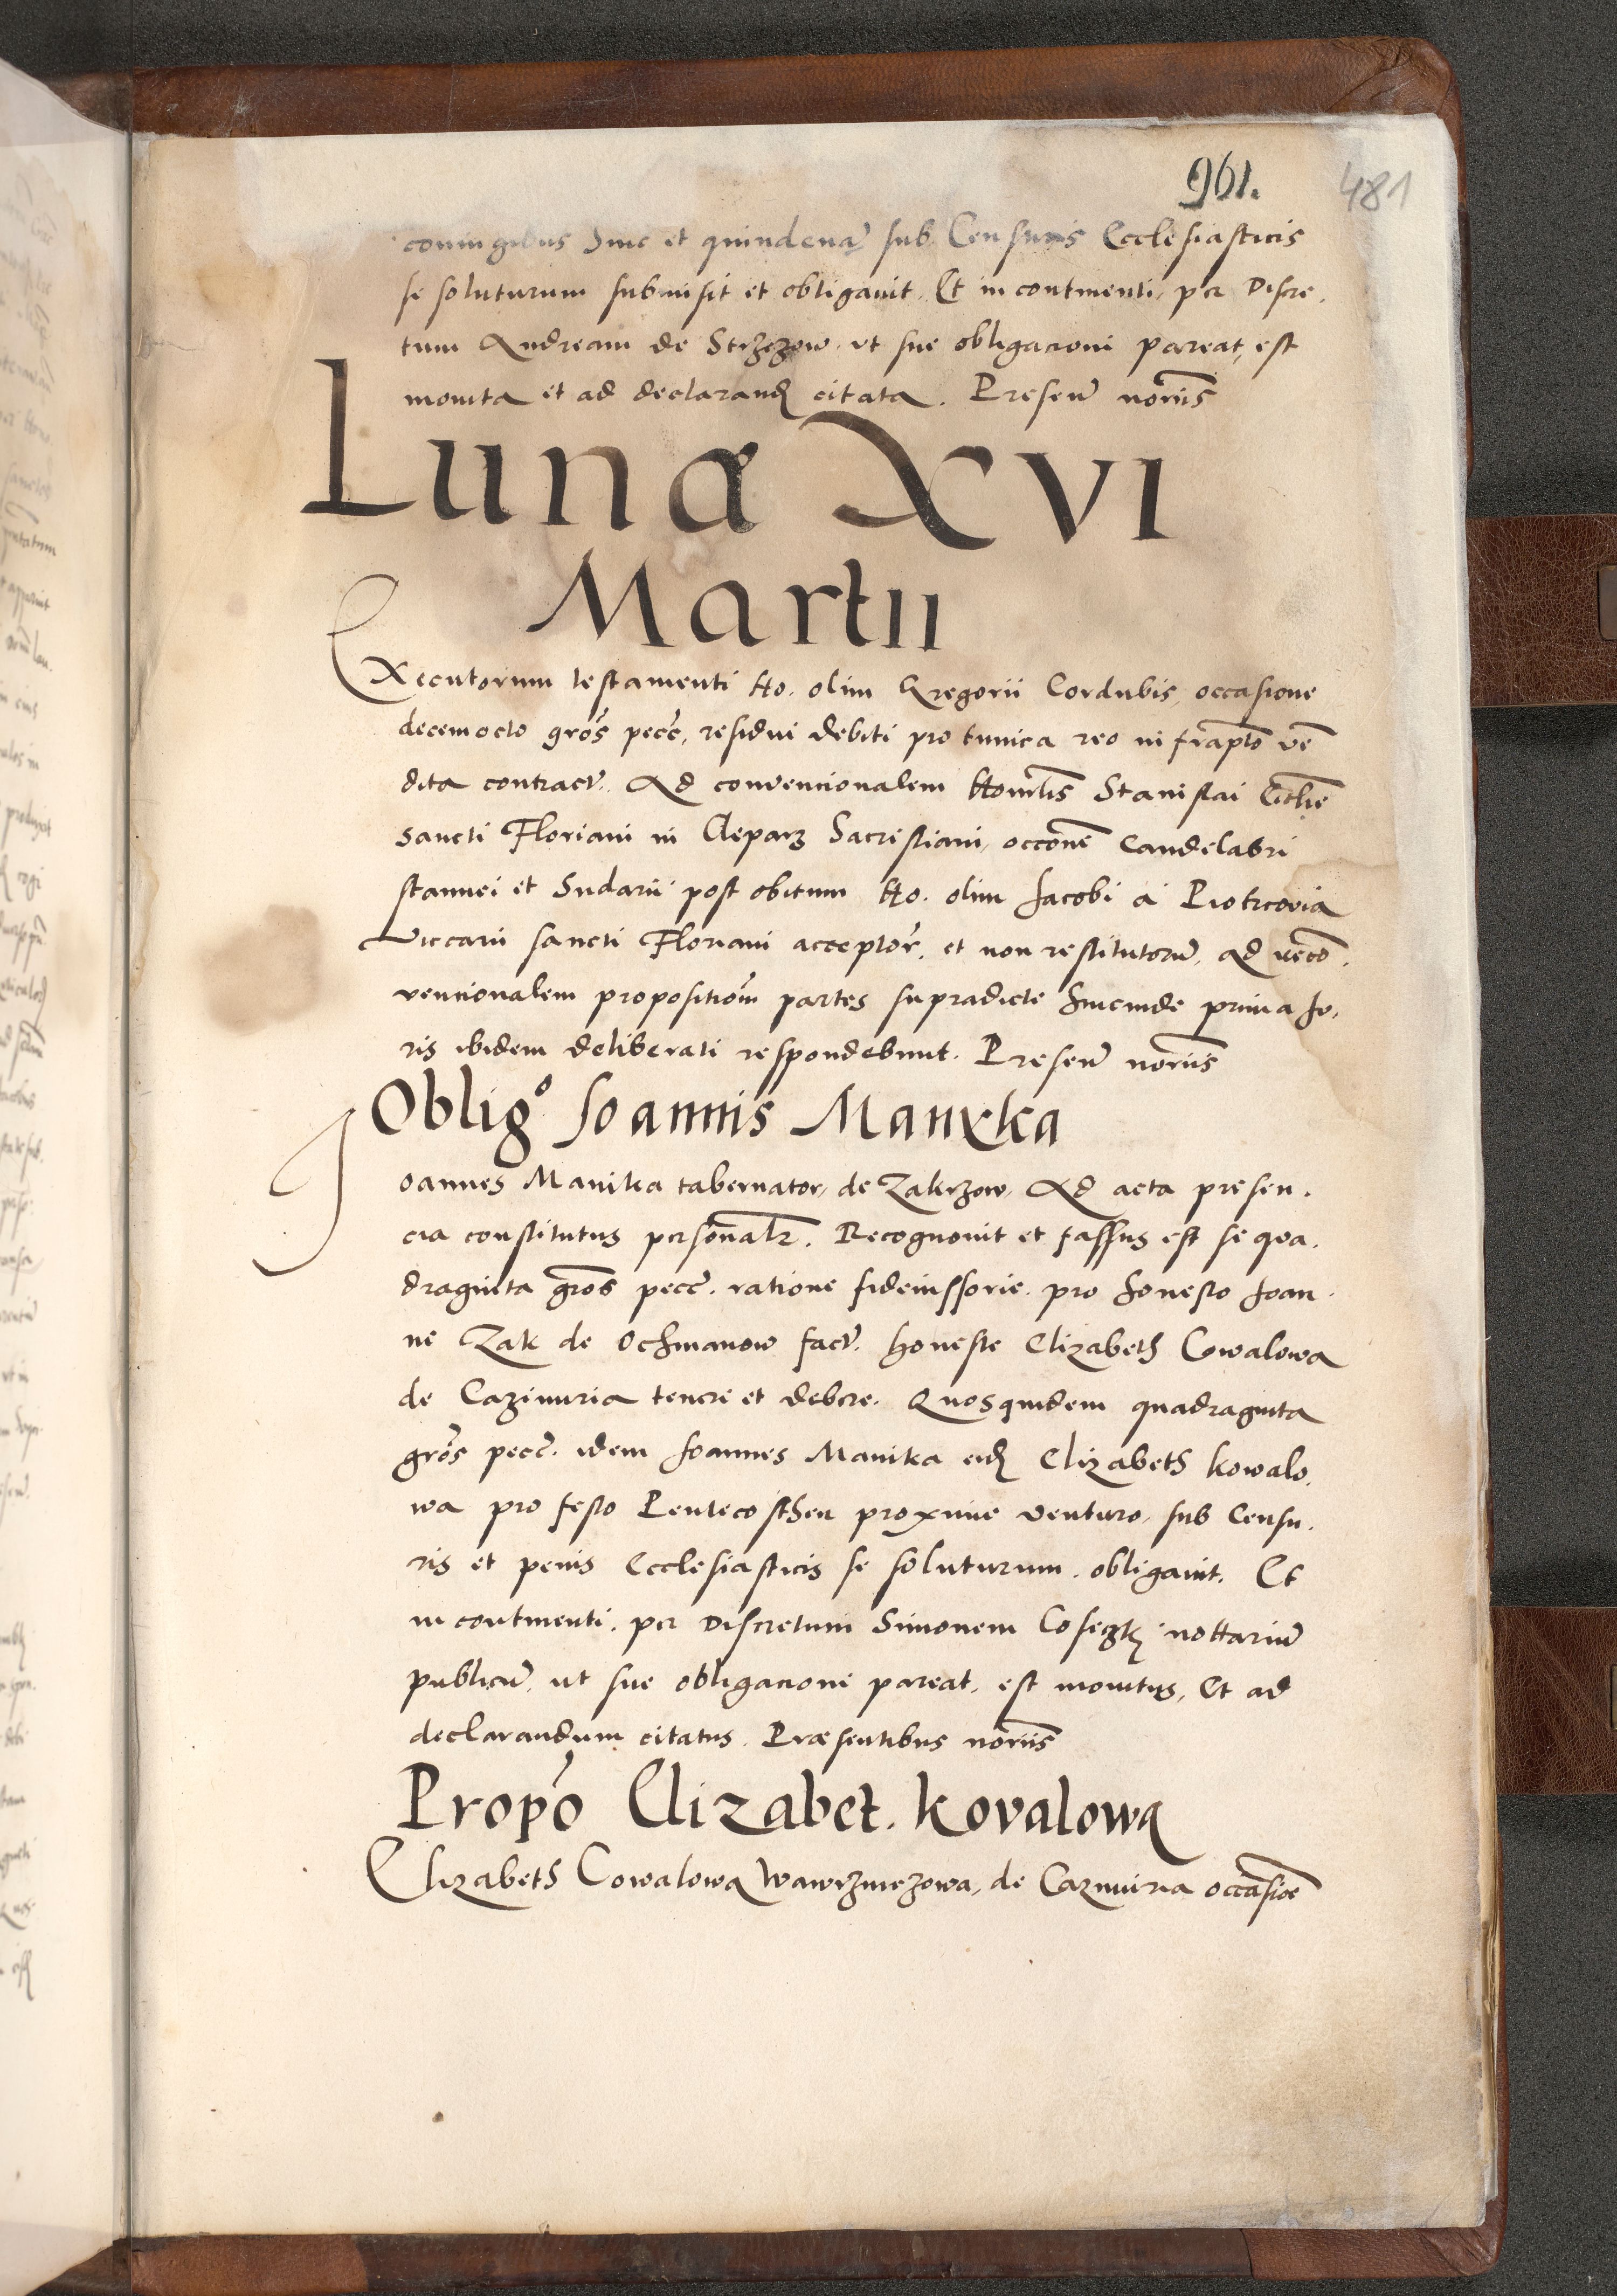 961.
481
coniugibus hinc et quindenã sub Censuris Ecclesiasticis
se soluturum submisit et obligauit. Et in continenti, per Discre,
tum Andream de Strzezow. vt sue obligacioni pareat, est
monita et ad declarand citata. Presenũ norijs
Lunæ XVI
Martii
Executorum testamenti Ho. olim Gregorii Cordubis, occasione
decemocto gros pecc, residui debiti pro tunica reo infrapto vẽ
dita contract. Ad convencionalem Honrlis Stanislai Ecclie
sancti Floriani in Cleparz Sacristiani, occone Candelabri
stannei et Sudarii post obitum Ho. olim Jacobi a Piotrcovia
Viccarii sancti Floriani acceptor. et non restitutorũ, ad recõ.
vencionalem propositiom partes supradicte hincinde prima Ju,
ris ibidem deliberati respondebunt. Presenũ norijs
Obligo Joannis Manyka
Joannes Manika tabernator, de Zakrzow, Ad acta presen.
cia constitutus personalr. Recognouit et fassus est se qua.
draginta gros pecc. ratione fideiussorie. pro honesto Joan.
ne Zak de Ochmanow fact. honeste Elizabeth Cowalowa
de Cazimiria tenere et debere. Quosquidem quadraginta
gros pecc. idem Joannes Manika eid Elizabeth kowalo,
wa pro festo Pentecosthen proxime venturo, sub Censu.
ris et penis Ecclesiasticis se soluturum. obligauit. Et
in continenti. per Discretum Simonem nottariũ
publicũ, ut sue obligacione pareat, est monitus, Et ad
declarandum citatus. Præsentibus norijs
Propo Elizabet. kovalowa
Elizabeth Cowalowa Wawrzinczowa, de Cazimiria occasioe